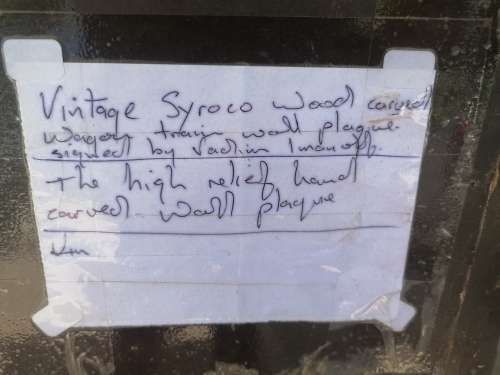 Vintage Syroco Wood carved
Wagon train wall plaque.
signed by Vadim Imanoff.
The high relief hand
carved wall plaque